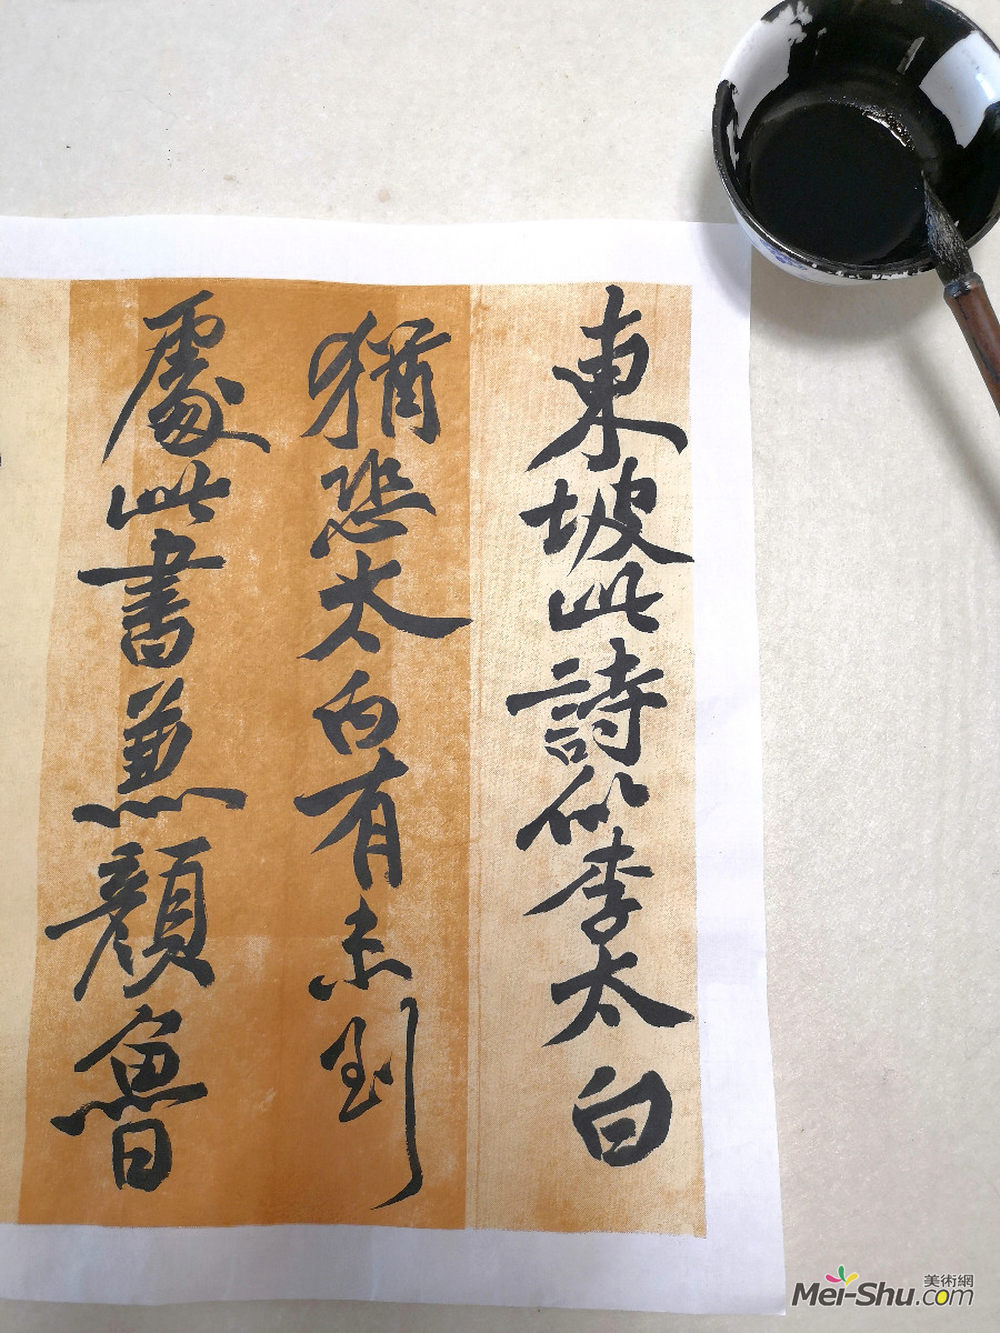 東坡此詩似李太白
猶恐太白有未到
處此書兼顏魯
美術網
Mei-Shu.com